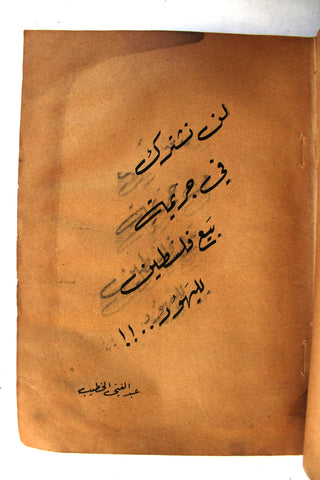 لن نشترك
في جريمة
بيع فلسطين
لليهود..!!
عبد الغني الخطيب